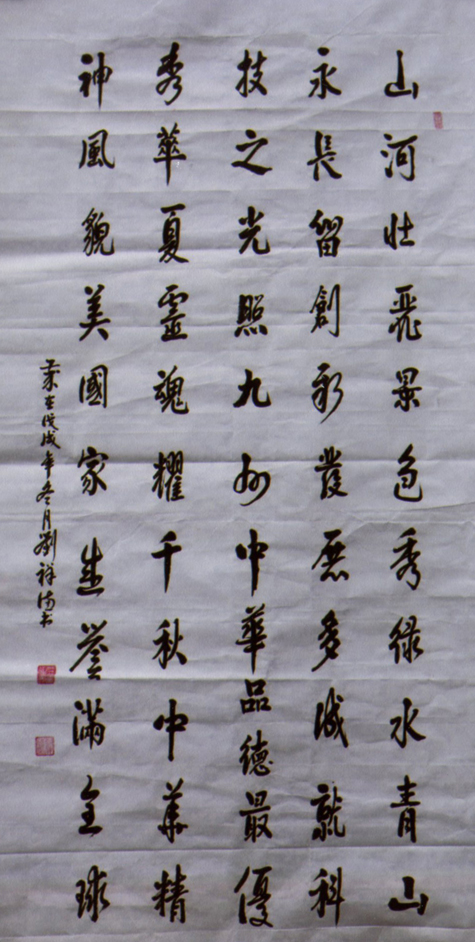 山河壮飛景色秀绿水青山
永長留創新發展多成就科
技之光照九州中華品德最優
秀華夏靈魂耀千秋中華精
神風貌美國家生譽滿全球
歲在戊戌年冬月劉祥海书